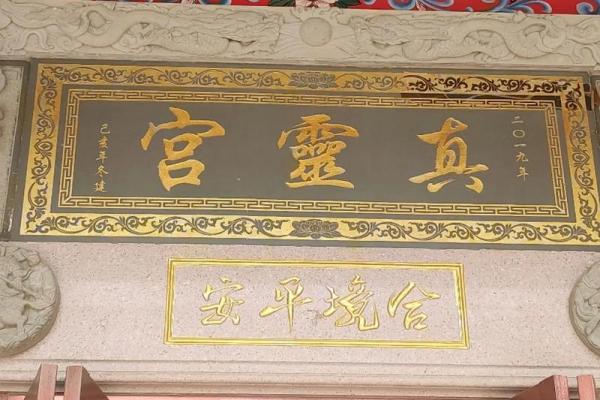 二〇一九年
真靈宮
己亥年冬建
合境平安